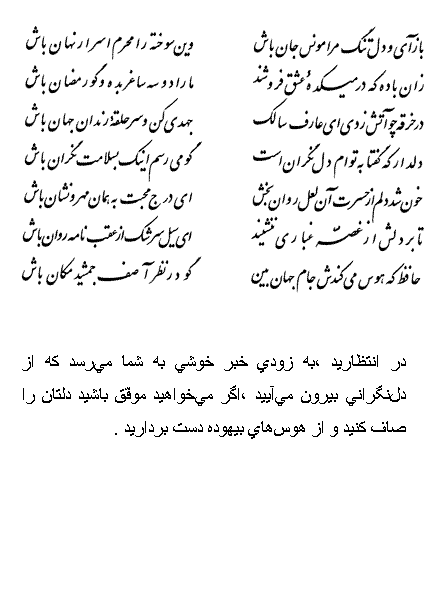 بازآی و دل تنگ مرا مونس جان باش وین سوخته را محرم اسرار نهان باش
زان باده که در میکدهٔ عشق فروشند ما را دو سه ساغر بده و گو رمضان باش
در خرقه چو آتش زدی ای عارف سالک جهدی کن و سرحلقهٔ رندان جهان باش
دلدار که گفتا به توام دل نگران است گو می رسم اینک بسلامت نگران باش
خون شد دلم از حسرت آن لعل روان بخش ای درج محبت به همان مهر و نشان باش
تا بر دلش از غصه غباری ننشیند ای سیل سرشک از عقب نامه روان باش
حافظ که هوس می کندش جام جهان بین گو در نظر آصف جمشید مکان باش
در انتظاريد ،به زودي خبر خوشي به شما مي‌رسد كه از
دل‌نگراني بيرون مي‌آييد ،اگر مي‌خواهيد موفق باشيد دلتان را
صاف كنيد و از هوس‌هاي بيهوده دست برداريد .